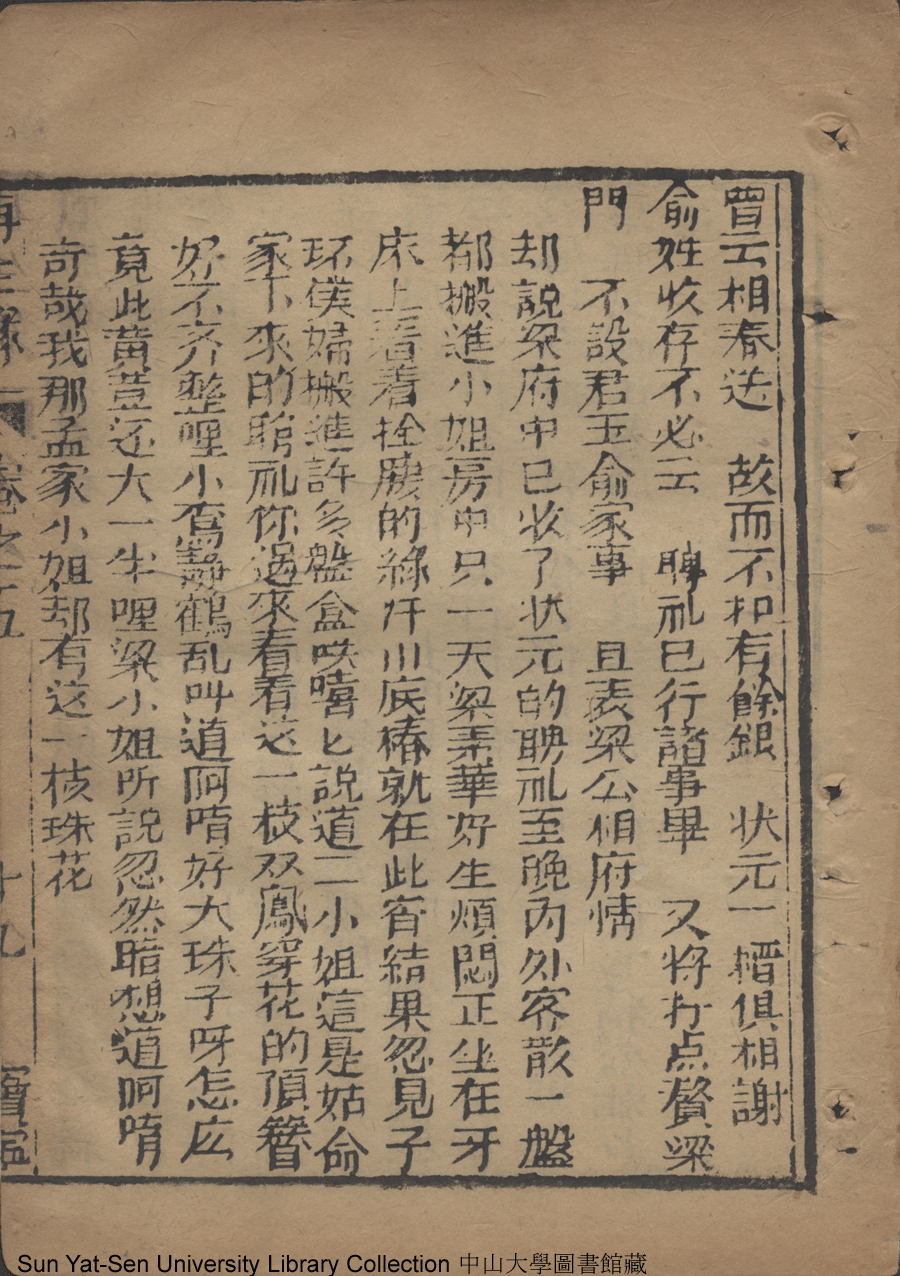 曽云相奉送　故而不扣有餘銀　状元一槢俱相謝
俞姓收存不必云　聘礼已行諸事畢　又將打点贅梁
門　不設君玉俞家事　且表梁公相府情
却說梁府中已收了状元的聘礼至晚內外客散一盤
都搬進小姐房中只一天梁素華好生煩悶正坐在牙
床上看着拴幔的綠汗巾底椿就在此宵結果忽見子
环僕婦搬進許多盤盒哄嘻匕說道二小姐這是姑爺
家下來的聘礼你過來看看这一枝双鳳穿花的頂簪
好不齐整哩小鸞靜鶴乱叫道阿唷好大珠子呀怎庅
竟此黄荳还大一半哩梁小姐所說忽然暗想道呵唷
奇哉我那孟家小姐却有这一枝珠花
再生緣　卷之十五　十九　寳寧
Sun Yat-Sen University Library Collection 中山大學圖書館藏